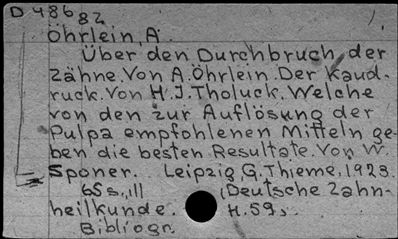 D 486 82
Öhrlein, A.
Über den Durchbruch der
Zähne. Von A. Öhrlein. Der Kaud-
ruck. Von H. J. Tholuck. Welche
von den zur Auflösung der
Pulpa empfohlenen Mitteln ge-
ben die besten Resultate. Von W.
Sponer. Leipzig, G. Thieme, 1923.
65 s., Ill (Deutsche Zahn-
heilkunde. H. 59).
Bibliogr.